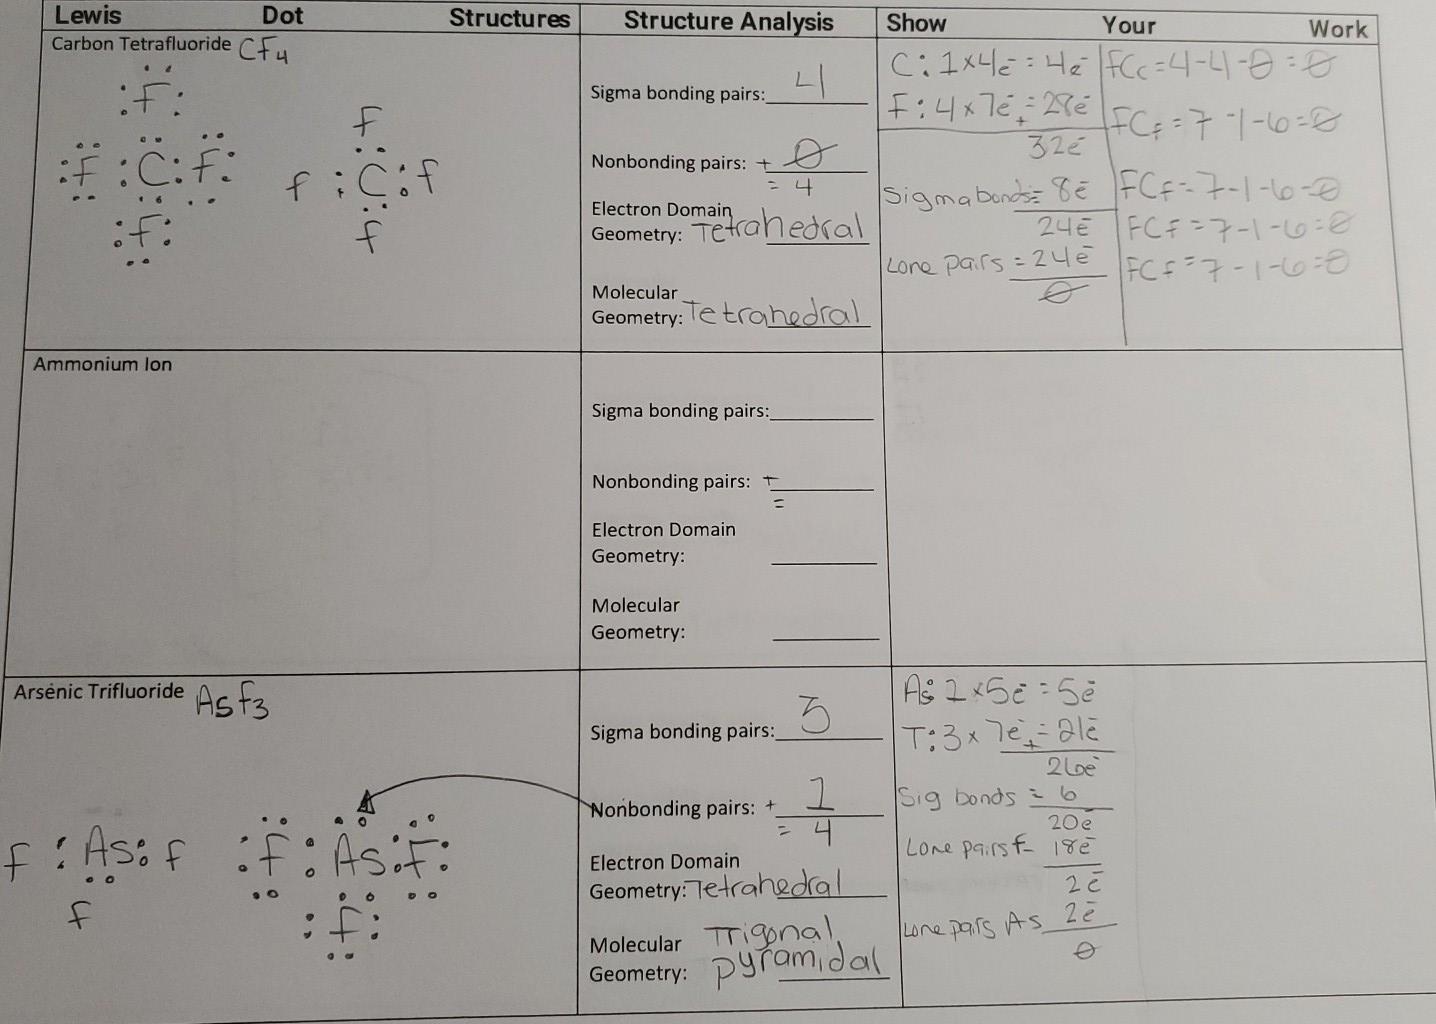 Lewis Dot Structures
Structure Analysis
Show Your Work
Carbon Tetrafluoride CF4
F
F C F
F
f
f C f
f
Sigma bonding pairs: 4
Nonbonding pairs: + 0
= 4
Electron Domain
Geometry: Tetrahedral
Molecular
Geometry: Tetrahedral
C: 1×4e⁻ = 4e⁻
F: 4×7e⁻ = 28e⁻
+
32e⁻
Sigma bonds = 8e⁻
24e⁻
Lone pairs = 24e⁻
0
FCc = 4-4-0 = 0
FCf = 7-1-6=0
FCf = 7-1-6=0
FCf = 7-1-6=0
FCf = 7-1-6=0
Ammonium Ion
Sigma bonding pairs:
Nonbonding pairs: +
=
Electron Domain
Geometry:
Molecular
Geometry:
Arsenic Trifluoride Asf3
f : As : f
f
F : As : F
F
Sigma bonding pairs: 3
Nonbonding pairs: + 1
= 4
Electron Domain
Geometry: Tetrahedral
Molecular
Geometry: Trigonal
pyramidal
As: 1×5e⁻ = 5e⁻
F: 3×7e⁻ = 21e⁻
+
26e⁻
Sig bonds = 6
20e⁻
Lone pairs f- 18e⁻
2e⁻
Lone pairs As 2e⁻
0